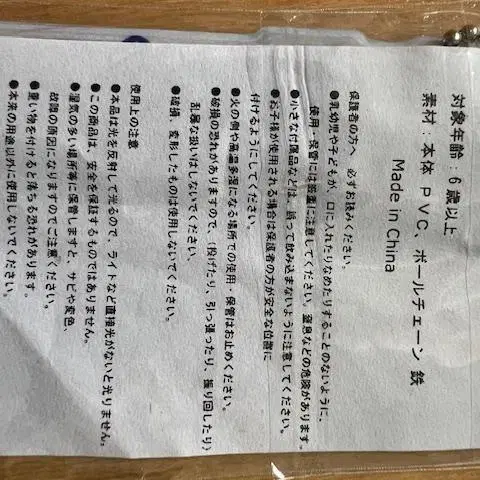 対象年齢：6歳以上
素材：本体 PVC、ボールチェーン 鉄
Made in China
保護者の方へ 必ずお読みください。
●乳幼児や子どもが、口に入れたりなめたりすることのないように、
使用・保管には厳重に注意してください。窒息などの危険があります。
●小さな付属品などは、誤って飲み込まないように注意してください。
●お子様が使用される場合は保護者の方が安全な位置に
付けるようにしてください。
●火の側や高温多湿になる場所での使用・保管はお止めください。
●破損の恐れがありますので、(投げたり、引っ張ったり、振り回したり)
乱暴な扱いはしないでください。
●破損、変形したものは使用しないでください。
使用上の注意
●本品は光を反射して光るので、ライトなど直接光がないと光りません。
●この商品は、安全を保証するものではありません。
●湿気の多い場所等に保管しますと、サビや変色、
故障の原因になりますのでご注意ください。
●重い物を付けると落ちる恐れがあります。
●本来の用途以外に使用しないでください。